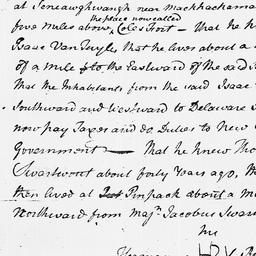 at Seneaughkwangh near Machhachama
the place now called
five Miles above Coles Fort — That he k
Isaac VanTuyle, that he lives about a
of a mile to the Eastward of the said I
That the Inhabitants from the said Isaac
Southward and westward to Delaware
now pay Taxes and do Duties to New
Government — That he knew Tho
Swartwout about forty Years ago,
then lived at Pinpack about a m
Northward from Maj. Jacobus Swar